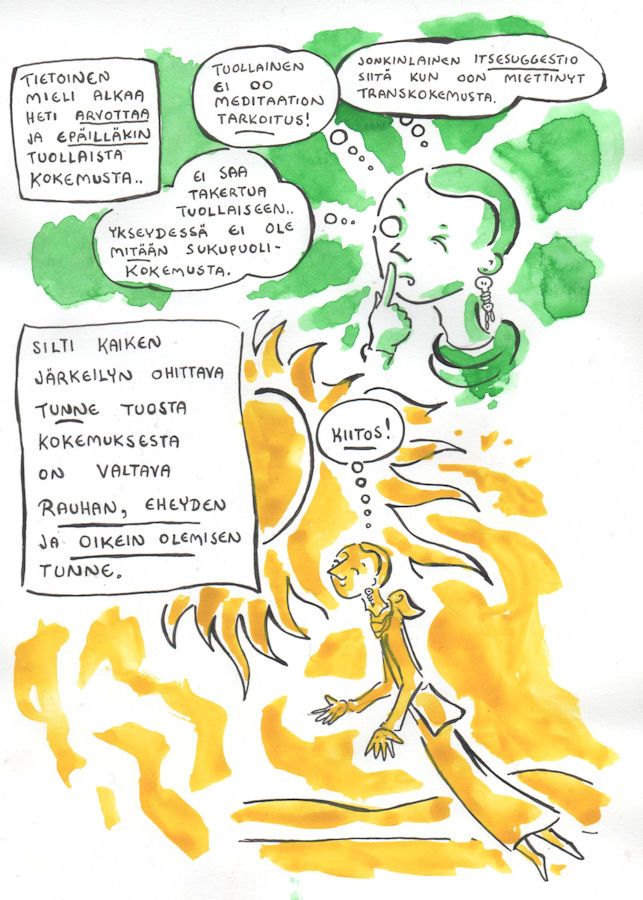 TIETOINEN
MIELI ALKAA
HETI ARVOTTAA
JA EPÄILLÄKIN
TUOLLAISTA
KOKEMUSTA..
TUOLLAINEN
EI OO
MEDITAATION
TARKOITUS!
JONKINLAINEN ITSESUGGESTIO
SIITÄ KUN OON MIETTINYT
TRANSKOKEMUSTA.
EI SAA
TAKERTUA
TUOLLAISEEN..
YKSEYDESSÄ EI OLE
MITÄÄN SUKUPUOLI-
KOKEMUSTA.
SILTI KAIKEN
JÄRKEILYN OHITTAVA
TUNNE TUOSTA
KOKEMUKSESTA
ON VALTAVA
RAUHAN, EHEYDEN
JA OIKEIN OLEMISEN
TUNNE.
KIITOS!